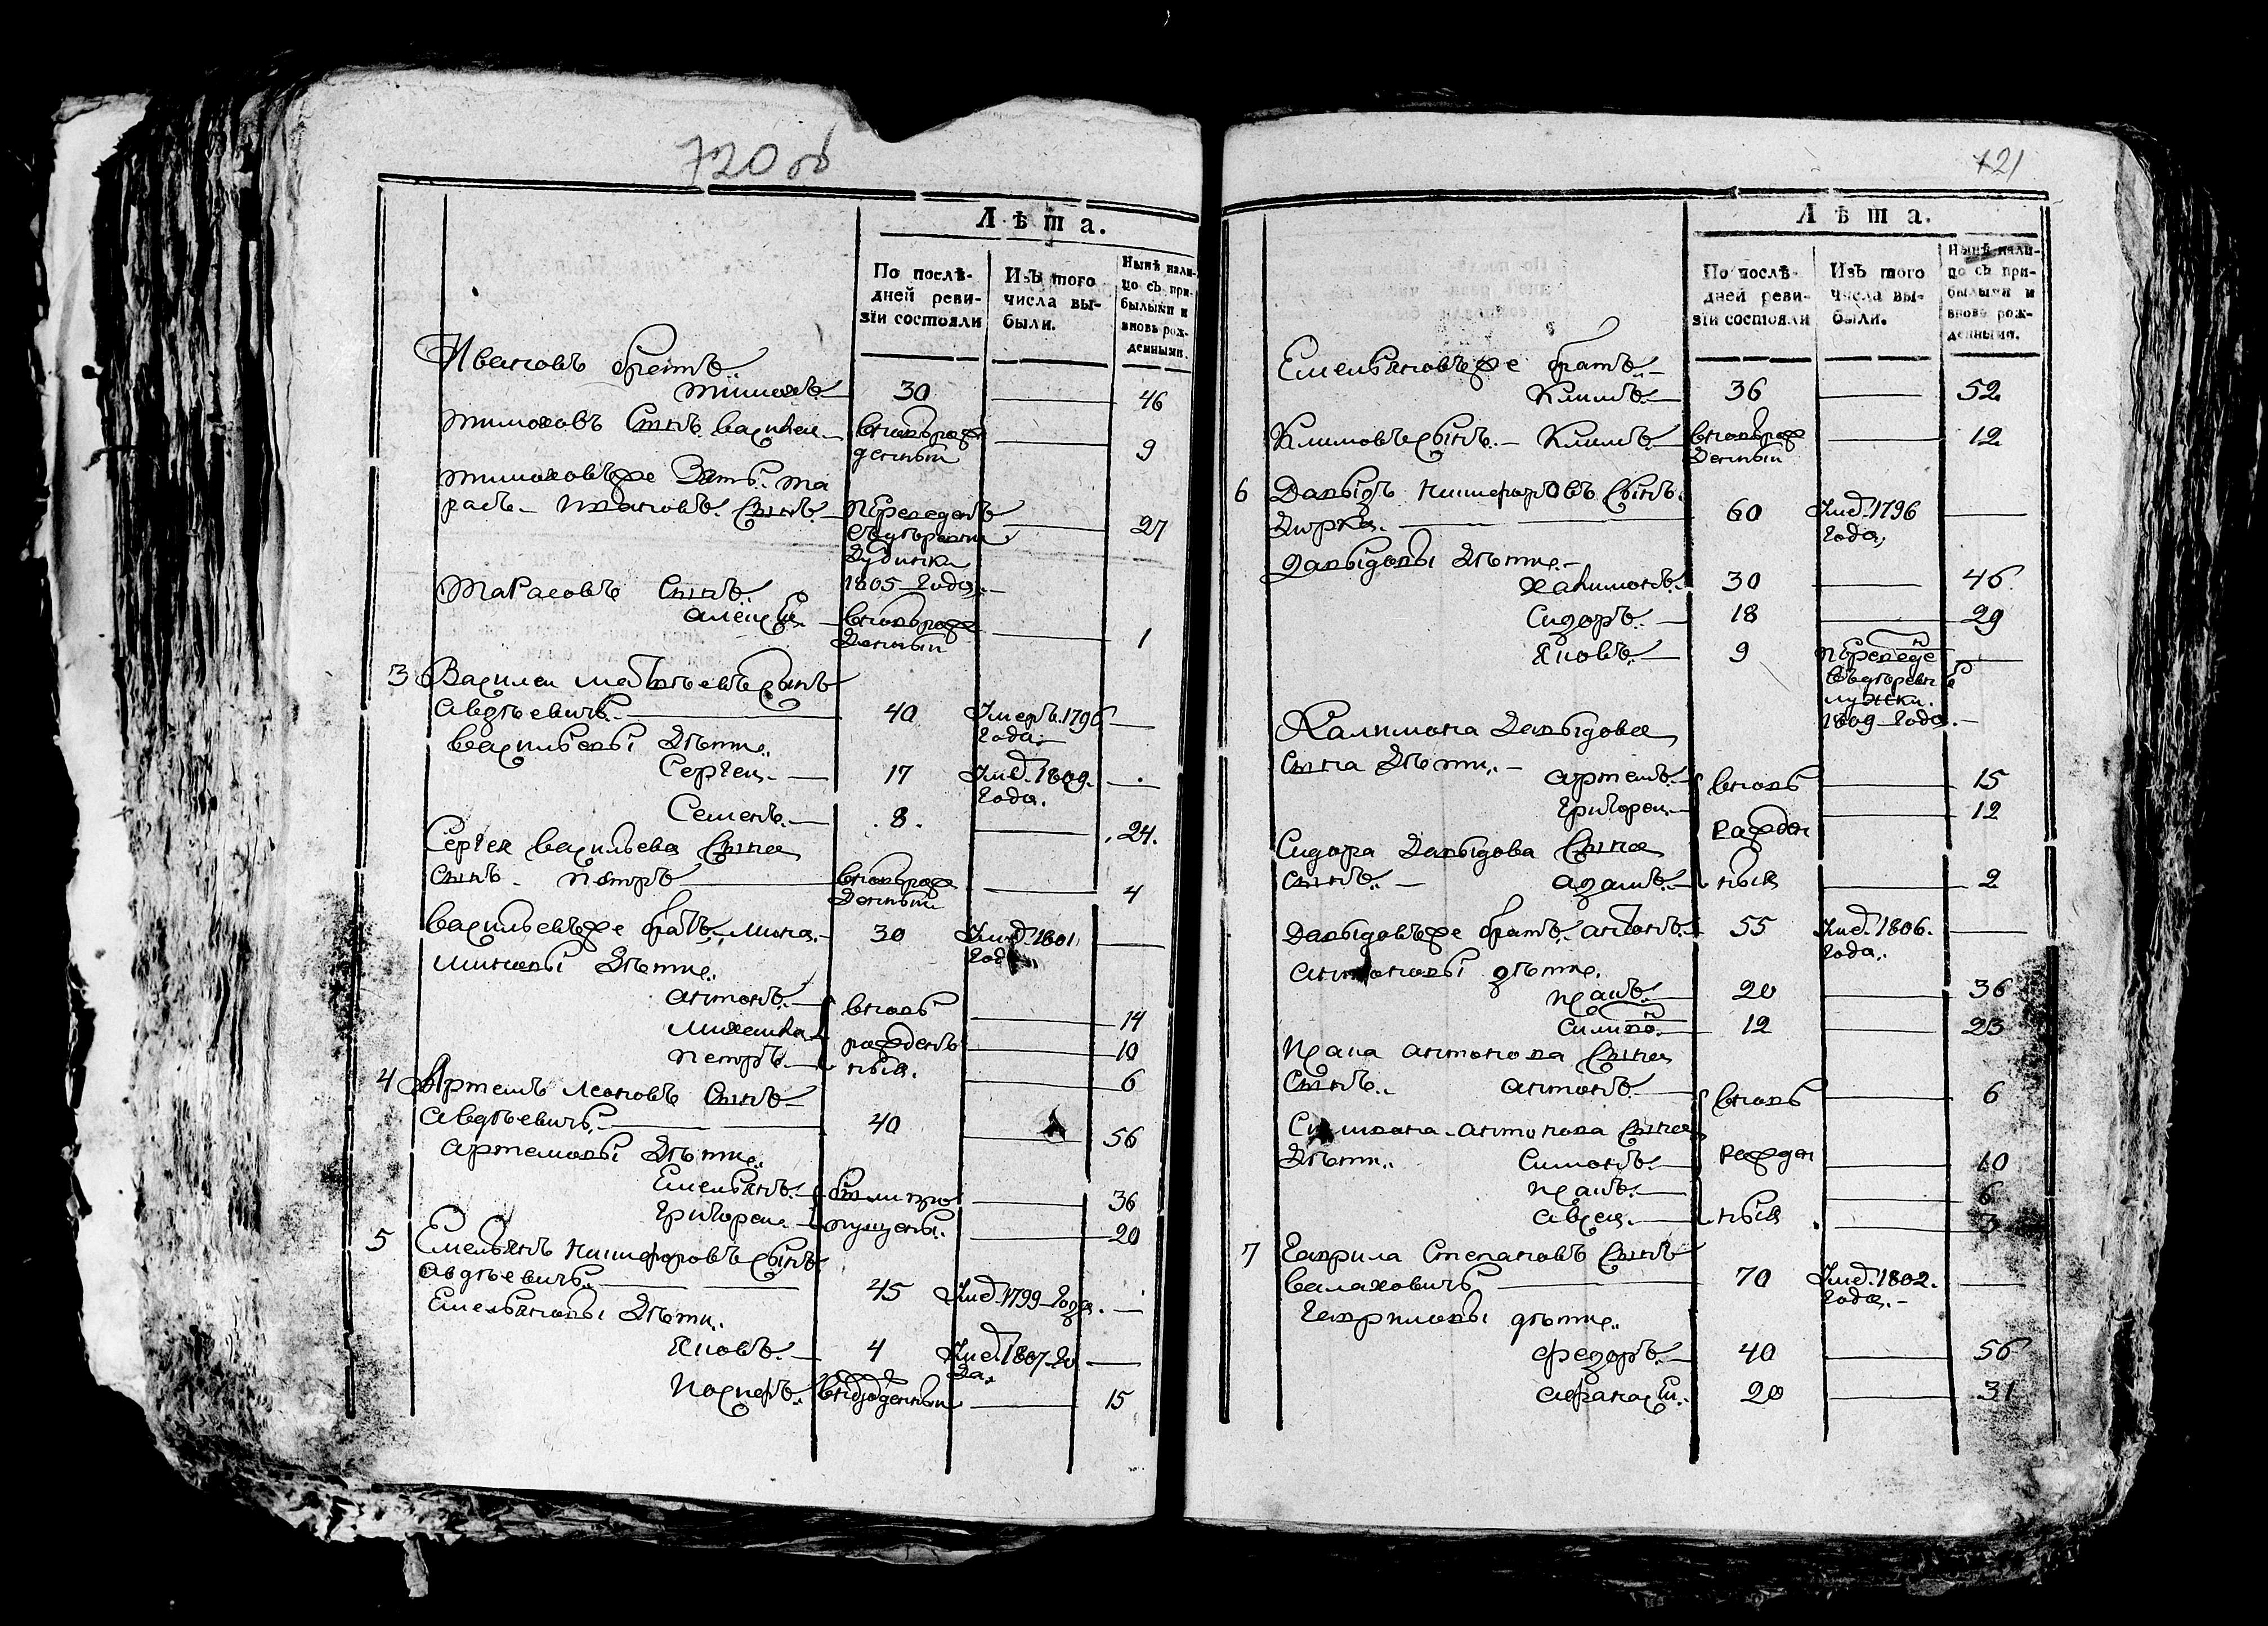 720 об
Лѣта.
По послѣ-
дней реви-
зіи состояли
Изъ того
числа вы-
были.
Нынѣ нали-
цо съ при-
былыми и
вновь рож-
денными.
Ивановъ братъ
тимохъ 30 — 46
тимоховъ Сынъ василеи вновьрож — 9
денныи
тимоховъже Зять та
расъ Сынъ переведенъ — 27
1805 года
тарасовъ Сынъ
алеѯѣи вновьрож — 1
денныи
3 Василеи матвѣевъ сынъ
авдѣевичь 40 Умеръ 1796 —
года
васильевы Дѣти
Сергеи 17 Умѣ 1809 —
года
Семенъ 8 — 24
Сергея васильева Сына
Сынъ петръ вновьрож — 4
денныи
васильевъже братъ мина 30 Умѣ 1801 —
года
миновы Дѣти
антонъ вновь — 14
михаила рожденъ — 10
петръ ныя — 6
4 Артемъ Леоновъ Сынъ
авдѣевичь 40 — 56
артемовы Дѣти
Емельянъ были про — 36
григореи пущены — 20
5 Емельянъ никифоровъ сынъ
авдѣевичь 45 Умѣ 1799 года —
Емельяновы Дѣти
Яковъ 4 Умѣ 1807 го —
да
15
721
Лѣта.
По послѣ-
дней реви-
зіи состояли
Изъ того
числа вы-
были.
Нынѣ нали-
цо съ при-
былыми и
вновь рож-
денными.
Емельяновъже братъ
Климъ 36 — 52
Климовъ сынъ Климъ вновьрож — 12
Денныи
6 Давыдъ никифоровъ сынъ
60 Умѣ 1796 —
года
Давыдовы Дѣти
халимонъ 30 — 46
Сидоръ 18 — 29
Яковъ 9 переведе —
въдѣревнѣ
лужки
1809 года
Халимона Давыдова
Сына Дѣти артемъ вновь — 15
григореи — 12
рожден
Сидора Давыдова Сына
Сынъ адамъ ныя — 2
Давыдовъже братъ антонъ 55 Умѣ 1806 —
года
антоновы дѣти
исаакъ 20 — 36
12 — 23
антонова Сына
Сынъ антонъ вновь — 6
антонова Сына
Дѣти Симонъ рожден — 10
6
ныя
7 Гаврила Степановъ Сынъ
валаховичь 70 Умѣ 1802 —
года
гавриловы дѣти
федоръ 40 — 56
афанасѣи 20 — 31